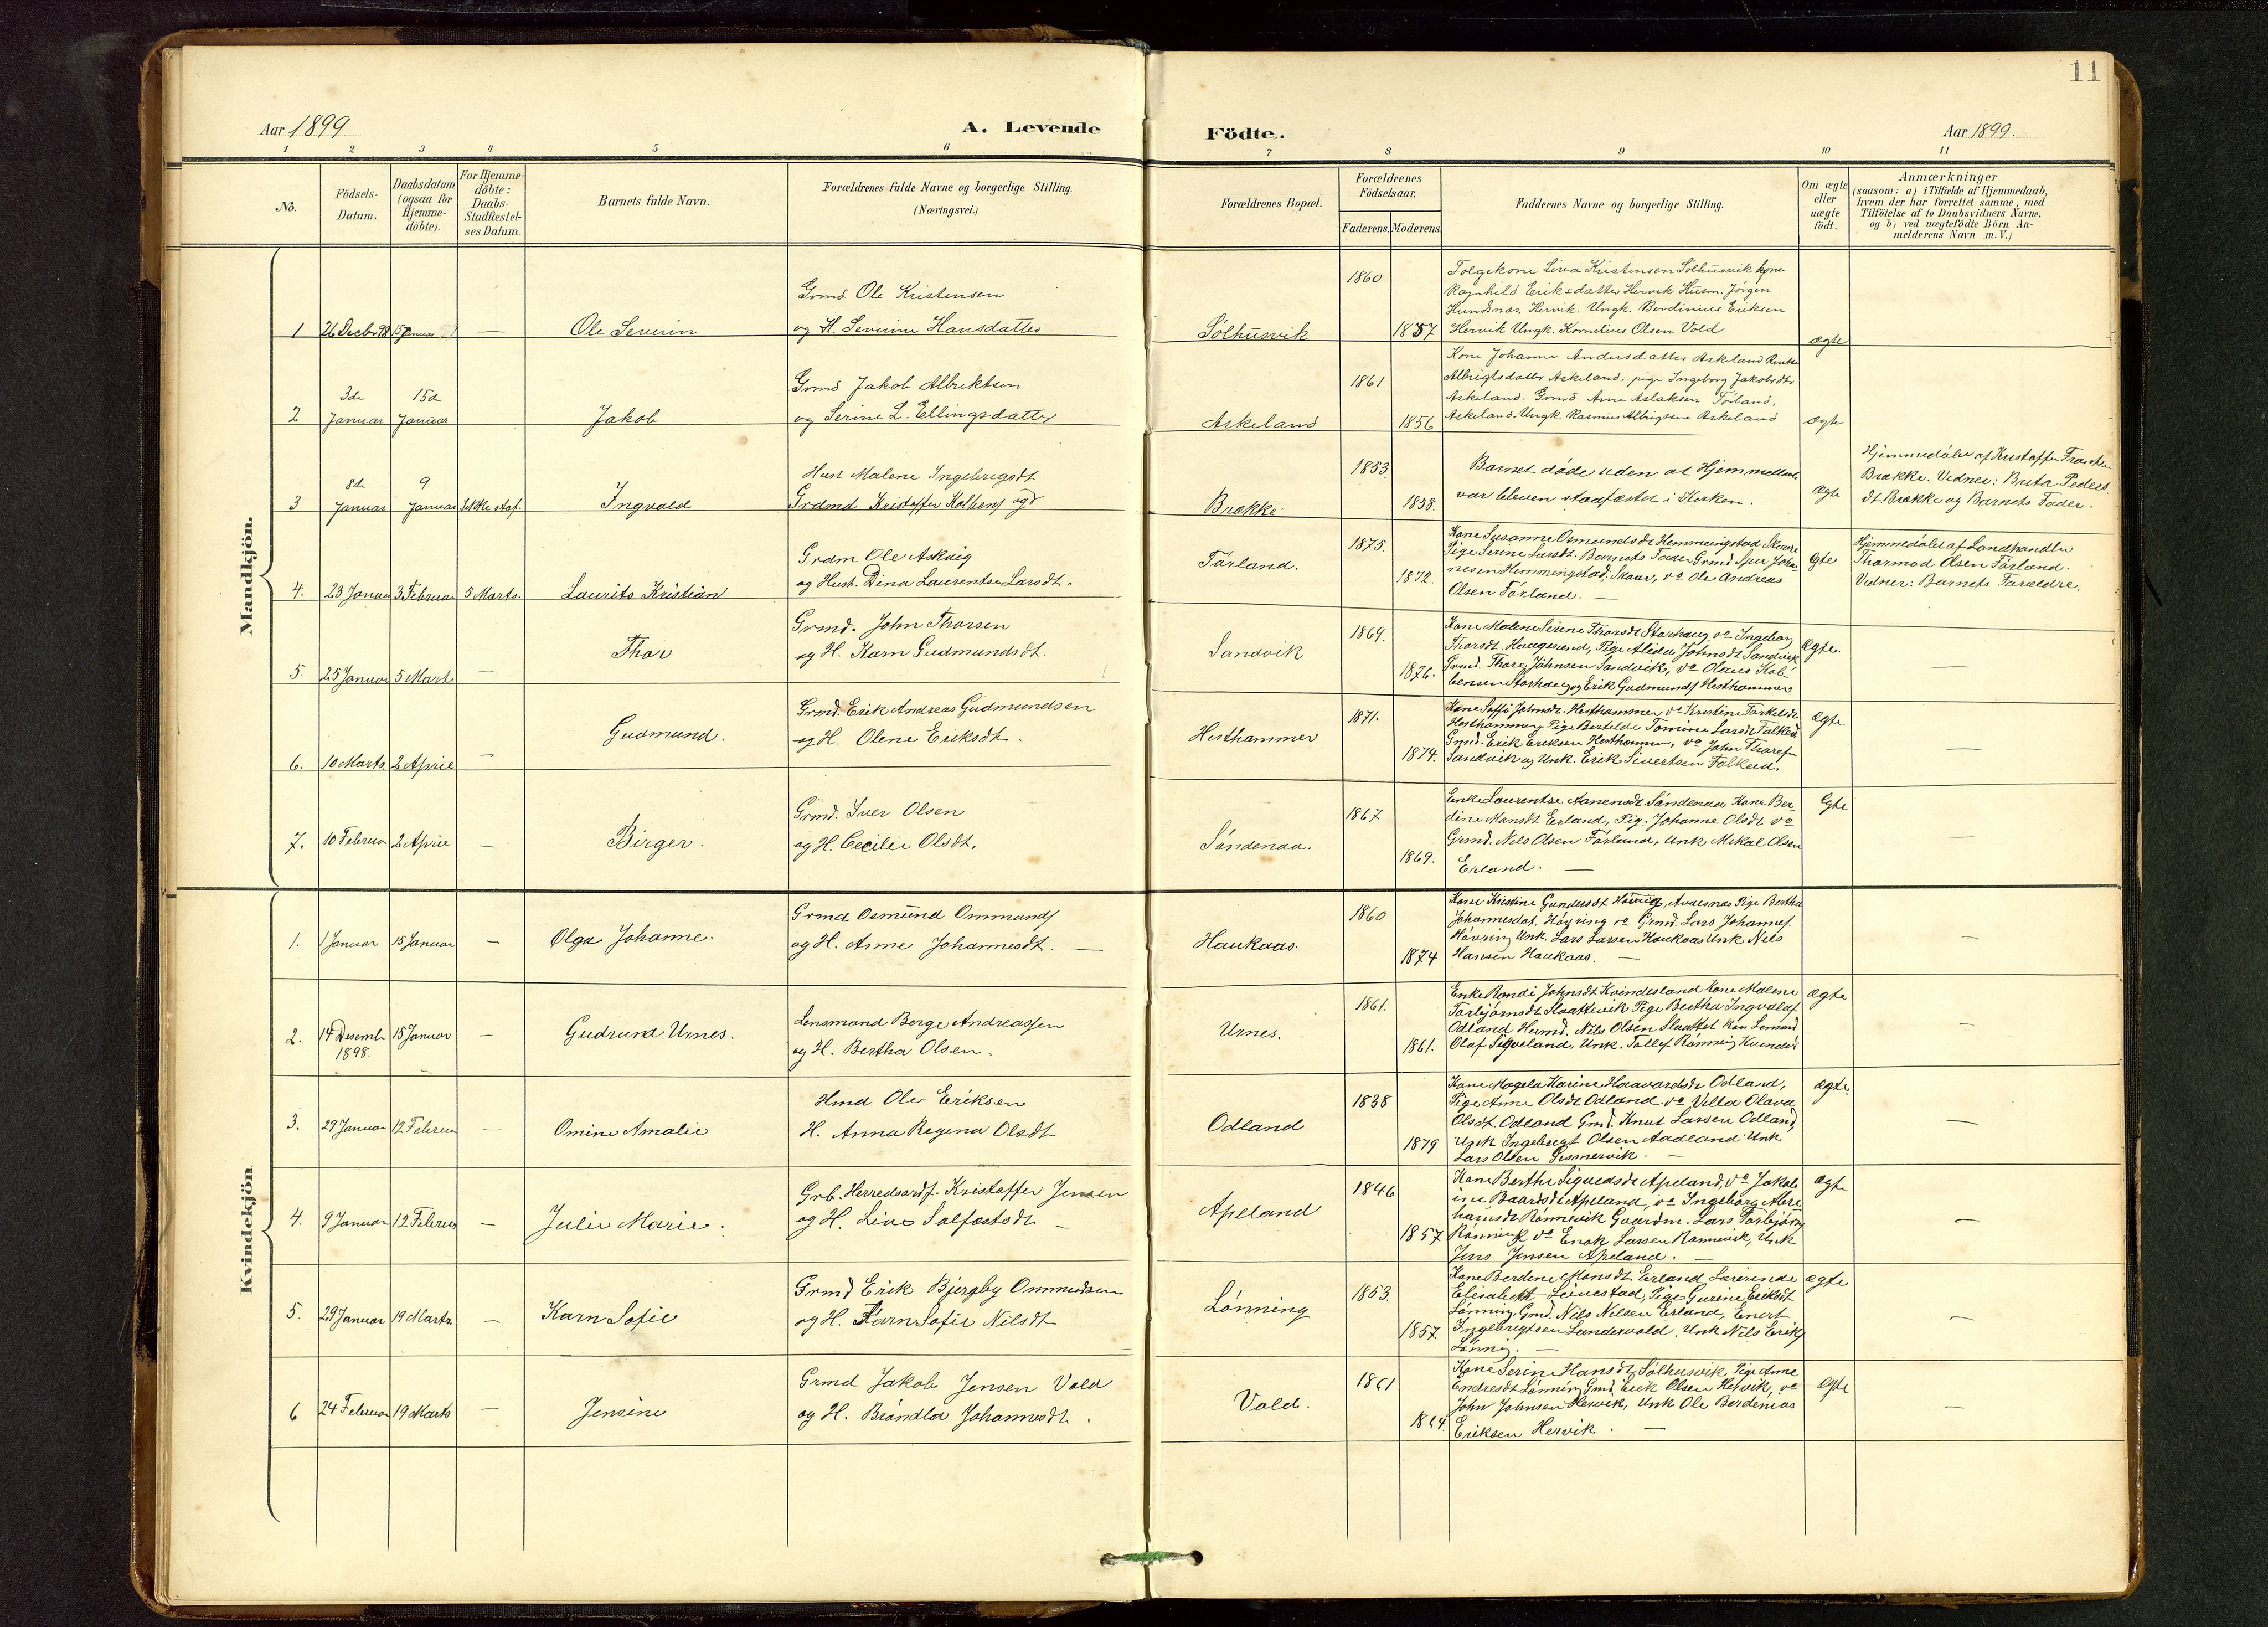 11
Aar 1899
A. Levende Födte.
Aar 1899.
1 2 3 4 5 6 7 8 9 10 11
No.
Födsels-Datum.
Daabsdatum (ogsaa for Hjemme-döbte).
For Hjemme-döbte: Daabs-Stadfæstel-ses Datum.
Barnets fulde Navn.
Forældrenes fulde Navne og borgerlige Stilling.
(Næringsvei.)
Forældrenes Bopæl.
Forældrenes Födselsaar.
Faderens. Moderens
Faddernes Navne og borgerlige Stilling.
Om ægte eller uægte födt.
Anmærkninger
(saasom: a) i Tilfælde af Hjemmedaab,
hvem der har forrettet samme, med
Tilföielse af to Daabsvidners Navne,
og b) ved uægtefödte Börn An-
melderens Navn m. V.)
Mandkjön.
1 26 Decbr 98 15 Januar — Ole Severin
Grmd. Ole Kristensen
og H. Severine Hansdatter
Sølhusvik
1860
1857
Følgekone Liva Kristensen Sølhusvik kone
Ragnhild Eriksdatter Hervik Husm. Jørgen
Hundsnæs, Hervik. Ungk. Berdinius Eriksen
Hervik Ungk. Kornelius Olsen Vold
ægte
2 3de Januar 15d Januar Jakob
Grmd Jakob Albriktsen
og Serine L. Ellingsdatter
Askeland
1861
1856
Kone Johanne Andersdatter Askeland
Albrigtsdatter Askeland. pige Ingeborg Jakobsdtr
Askeland. Grmd Arne Aslaksen Førland,
Askeland. Ungk. Rasmus Albrigtsen Askeland
ægte
3 8de Januar 9 Januar Ikke staf. Ingvald
Hust Malene Ingebregsdt
Grdmd Kristoffer
Brække
1853
1858.
Barnet døde uden at Hjemmedaab
var bleven stadfæstet i Kirken.
ægte
Hjemmedøbt af Kristoffer
Brække. Vidner: Berta Peders
dt Brække og Barnets Fader.
4. 23 Januar 3 Februar 5 Marts. Laurits Kristian
Grdm Ole Askvig
og Hust. Dina Laurentse Larsdt.
Førland.
1875.
1872.
Kone Susanne Osmundsdt Hemmingstad Skaare
Pige Serine Larsdt. Barnets Fader Grmd Sjur Joha-
nesen Hemmingstad, Skaar, do Ole Andreas
Olsen Førland. —
Ægte
Hjemmedøbt af Landhandler
Thormod Olsen Førland.
Vidner: Barnets Forældre.
5. 25 Januar 5 Marts — Thor
Grmd. John Thorsen
og H. Karn Gudmundsdt.
Sandvik
1869.
1876.
Kone Malene Serine Thorsdt Storhaug, do Ingeborg
Thorsdt Haugesund, Pige Alida Johnsdt Sandvik
Grmd. Thore Johnsen Sandvik, do Olaus Kol-
bensen Storhaug og Erik Gudmunds Hesthammer
Ægte.
—
6. 10 Marts. 2 April — Gudmund.
Grmd. Erik Andreas Gudmundsen
og H. Olene Eriksdt.
Hesthammer
1871.
1874.
Kone Soffi Johnsdt. Hesthammer do Kristine Torkelsdt
Hesthammer, Pige Bertilde Tomine Larsdt Falkeid
Grmd. Erik Eriksen Hesthammer, do John Thorsen
Sandvik og Unk. Erik Sivertsen Falkeid.
Ægte.
—
7. 10 Februar 2 April — Birger.
Grmd. Iver Olsen
og H. Cecilie Olsdt.
Søndenaa.
1867
1869.
Enke Laurentse Aanensdt Søndenaa Kone Ber-
dine Monsdt Erland, Pig. Johanne Olsdt do
Grmd. Nils Olsen Førland, Unk Mikal Olsen
Erland. —
Ægte
—
Kvindekjön
1. 1 Januar 15 Januar — Olga Johanne.
Grmd Osmund Ommunds
og H. Anne Johannesdt. —
Haukaas.
1860
1874
Kone Kristine Gundersdt Høvring, Avaldsnæs Pige Bertha
Johannesdat. Høyring do Grmd. Lars Johannes.
Høvring Unk. Lars Larsen Haukaas Unk Nils
Hansen Haukaas. —
—
2. 14 Desembr 1898. 15 Januar — Gudrund Urnes.
Lensmand Berge Andreassen
og H. Bertha Olsen.
Urnes.
1861.
1861.
Enke Randi Johnsdt Kvindesland Kone Malene
Torbjørnsdt Slaattevik Pige Bertha Ingvalds
Odland Husmd. Nils Olsen Lensmd
Olaf Sigveland, Unk. Tollef Rønning
Ægte
—
3. 29 Januar 12 Februar — Omine Amalie
Hmd Ole Eriksen
H. Anna Regina Olsdt
Odland
1838
1879
Kone Magela Karine Haavardsdt Odland,
Pige Anne Olsdt Odland do Villa Olava
Olsdt. Odland Gmd. Knut Larsen Odland,
Unk Ingebregt Olsen Aadland Unk
Lars Olsen Grønnevik. —
Ægte.
—
4. 9 Januar 12 Februar — Julie Marie.
Grb. Herredsordf. Kristoffer Jensen
og H. Liva Salfæstsdt —
Apeland
1846
1857
Kone Berthe Siqvedsdt Apeland, do Jakob
ine Baardsdt Apeland, do Ingeborg Abra
hamsdt Rønnevik Gaardm. Lars Torbjørns
Rønnevik do Enok Larsen Rønnevik, Unk
Jens Jensen Apeland. —
Ægte
—
5. 29 Januar 19 Marts. — Karn Sofie
Grmd Erik Bjergby Ommundsen
og H. Karn Sofie Nilsdt
Lønning
1853.
1857.
Kone Berdine Monsdt Erland Lærerinde
Elisabeht Leinestad, Pige Gurine Eriksdt
Lønning, Gmd. Nils Nilsen Erland, Enert
Ingebregtsen Landevold, Unk Nils Eriks
Lønning. —
ægte
—
6 24 Februar 19 Marts — Jensine
Grmd Jakob Jensen Vold
og H. Brøndla Johannesdt.
Vold.
1861
1864.
Kone Serine Hansdt Sølhusvik, Pige Anne
Endresdt Lønning, Gmd. Erik Olsen Hervik, do
John Johnsen Hervik, Unk Ole Berdenias
Eriksen Hervik. —
Ægte
—